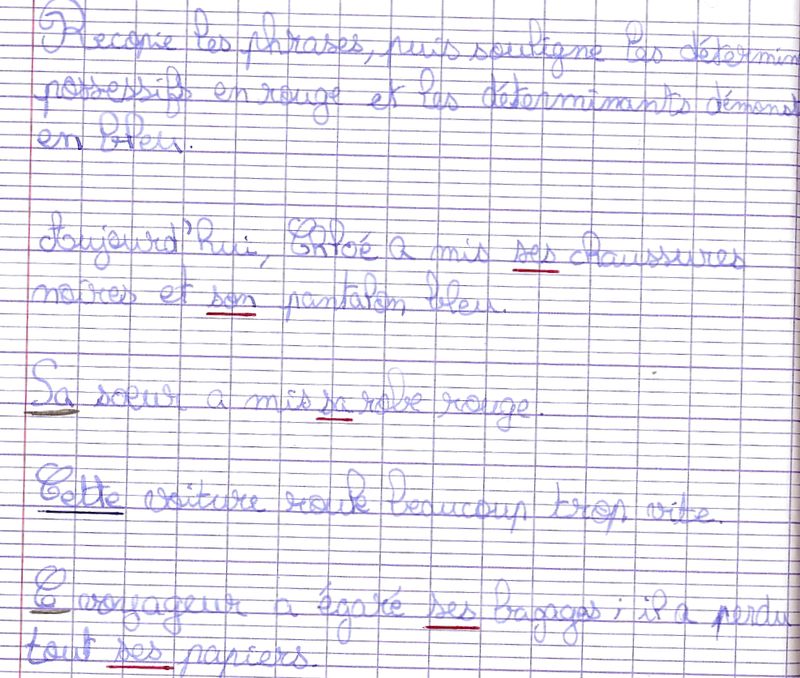 Recopie les phrases, puis souligne les détermin
possessifs en rouge et les déterminants démonst
en bleu.
Aujourd'hui, Chloé a mis ses chaussures
noires et son pantalon bleu.
Sa soeur a mis sa robe rouge.
Cette voiture roule beaucoup trop vite.
C voyageur a égaré ses bagages ; il a perdu
tout ses papiers.